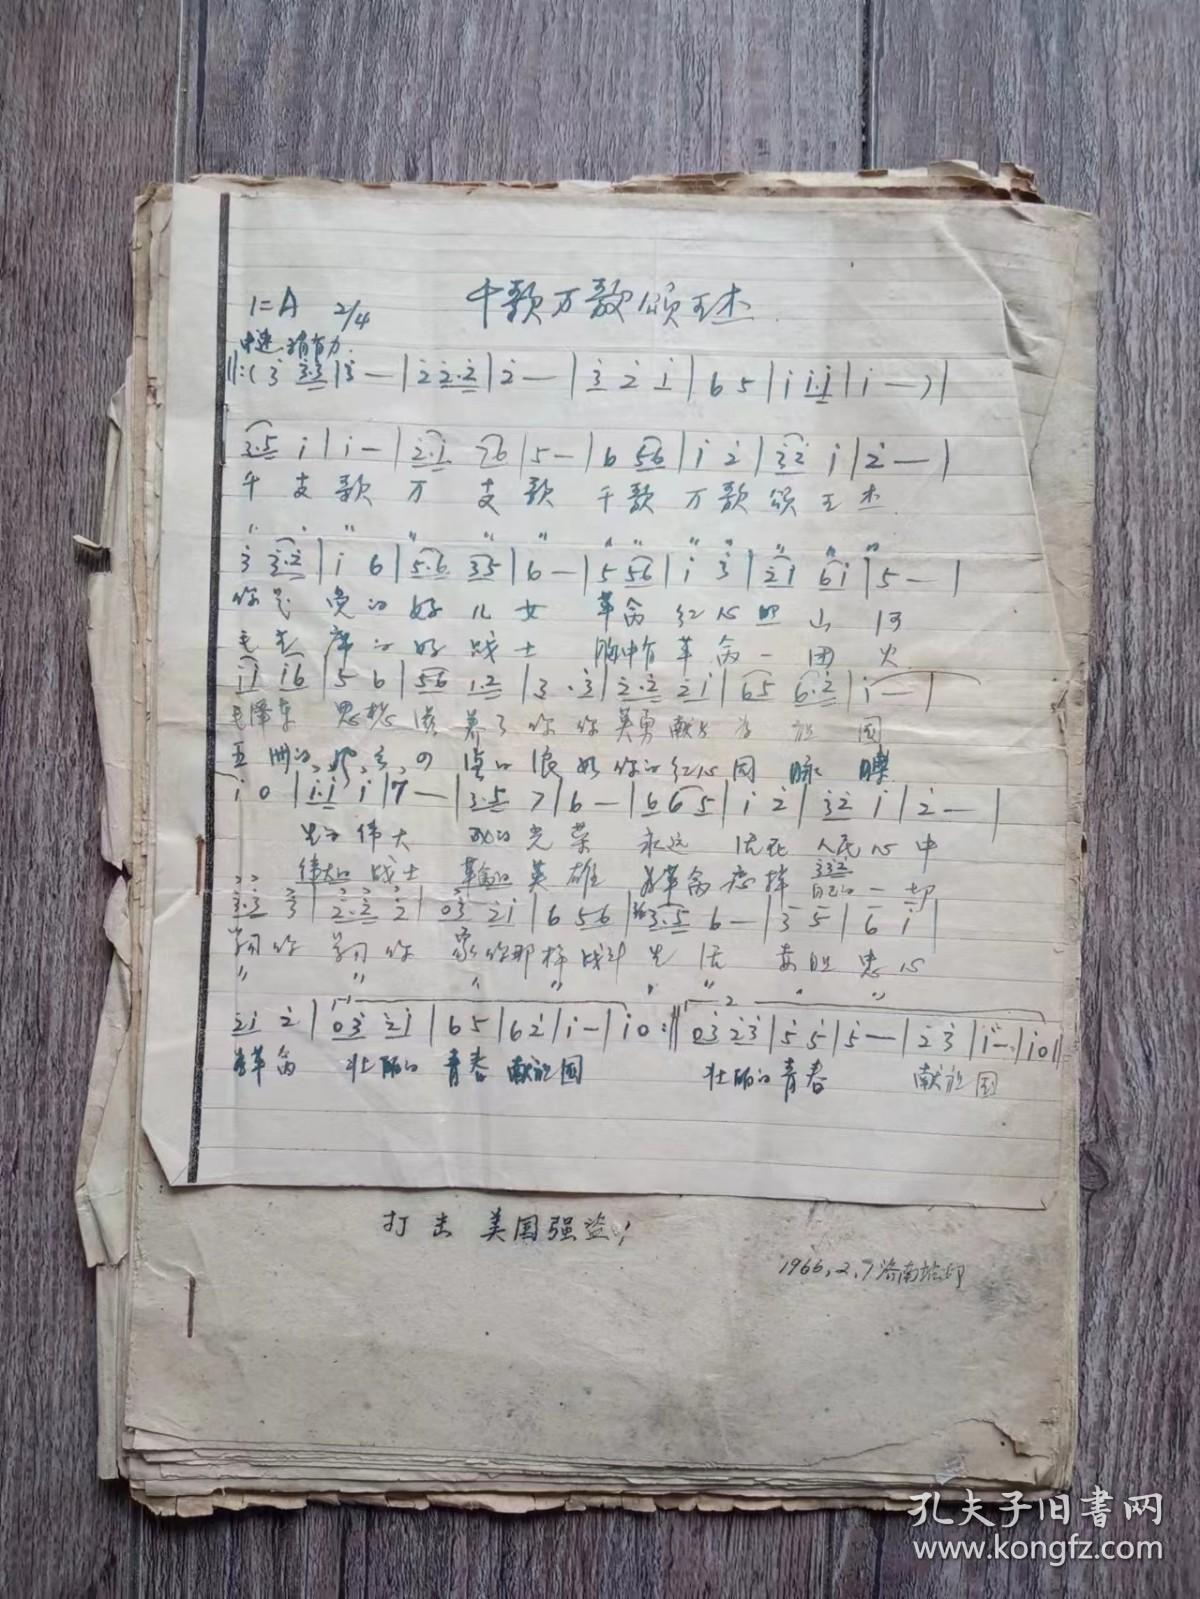 千歌万歌颂王杰
1=A 2/4
中速 有力
‖:( 3̇ 3̇·3̇ | 3̇ — | 2̇ 2̇·2̇ | 2̇ — | 3̇ 2̇ 1̇ | 6 5 | 1̇ 1̇·1̇ | 1̇ — ) |
3·5 1̇ | 1̇ — | 2̇·1̇ 76 | 5 — | 6 56 | 1̇ 2̇ | 3̇2̇ 1̇ | 2̇ — |
千支歌万支歌 千歌万歌颂王杰
3̇ 3̇·2̇ | 1̇ 6 | 5·6 35 | 6 — | 5 56 | 1̇ 3̇ | 2̇1̇ 61̇ | 5 — |
你是党的好儿女 革命红心照山河
毛主席的好战士 胸中有革命一团火
1̇1̇ 1̇6 | 5 6 | 56 1·2 | 3·3 | 2·2 21 | 65 6·2̇ | 1̇ — |
毛泽东 思想滋养了你 你英勇献身为祖国
的 你的红心
1̇ 0 | 1̇·1̇ 1̇ | 7 — | 3·5 7 | 6 — | 6 6 5 | 1̇ 2̇ | 3̇2̇ 1̇ | 2̇ —  |
伟大 光荣 永远活在人民心中
伟大的战士 革命的英雄 为革命 自己的一切
3̇·3̇ 3̇ | 2̇·2̇ 2̇ | 03̇ 2̇1̇ | 6 56 | 3·5 6 — | 3 5 | 6 1̇ |
学习你 学习你 象你那样战斗生活 忠心
2̇1̇ 2̇ | 03̇ 2̇1̇ | 6 5 | 6 2̇ | 1̇ — | 1̇ 0 :‖ 03̇ 2̇3̇ | 5̇ 5̇ | 5̇ — | 2̇ 3̇ | 1̇ — | 1̇ 0 ‖
为革命 壮丽的青春献祖国 壮丽的青春 献祖国
打击美国强盗!
1966.2.7济南
孔夫子旧书网
www.kongfz.com